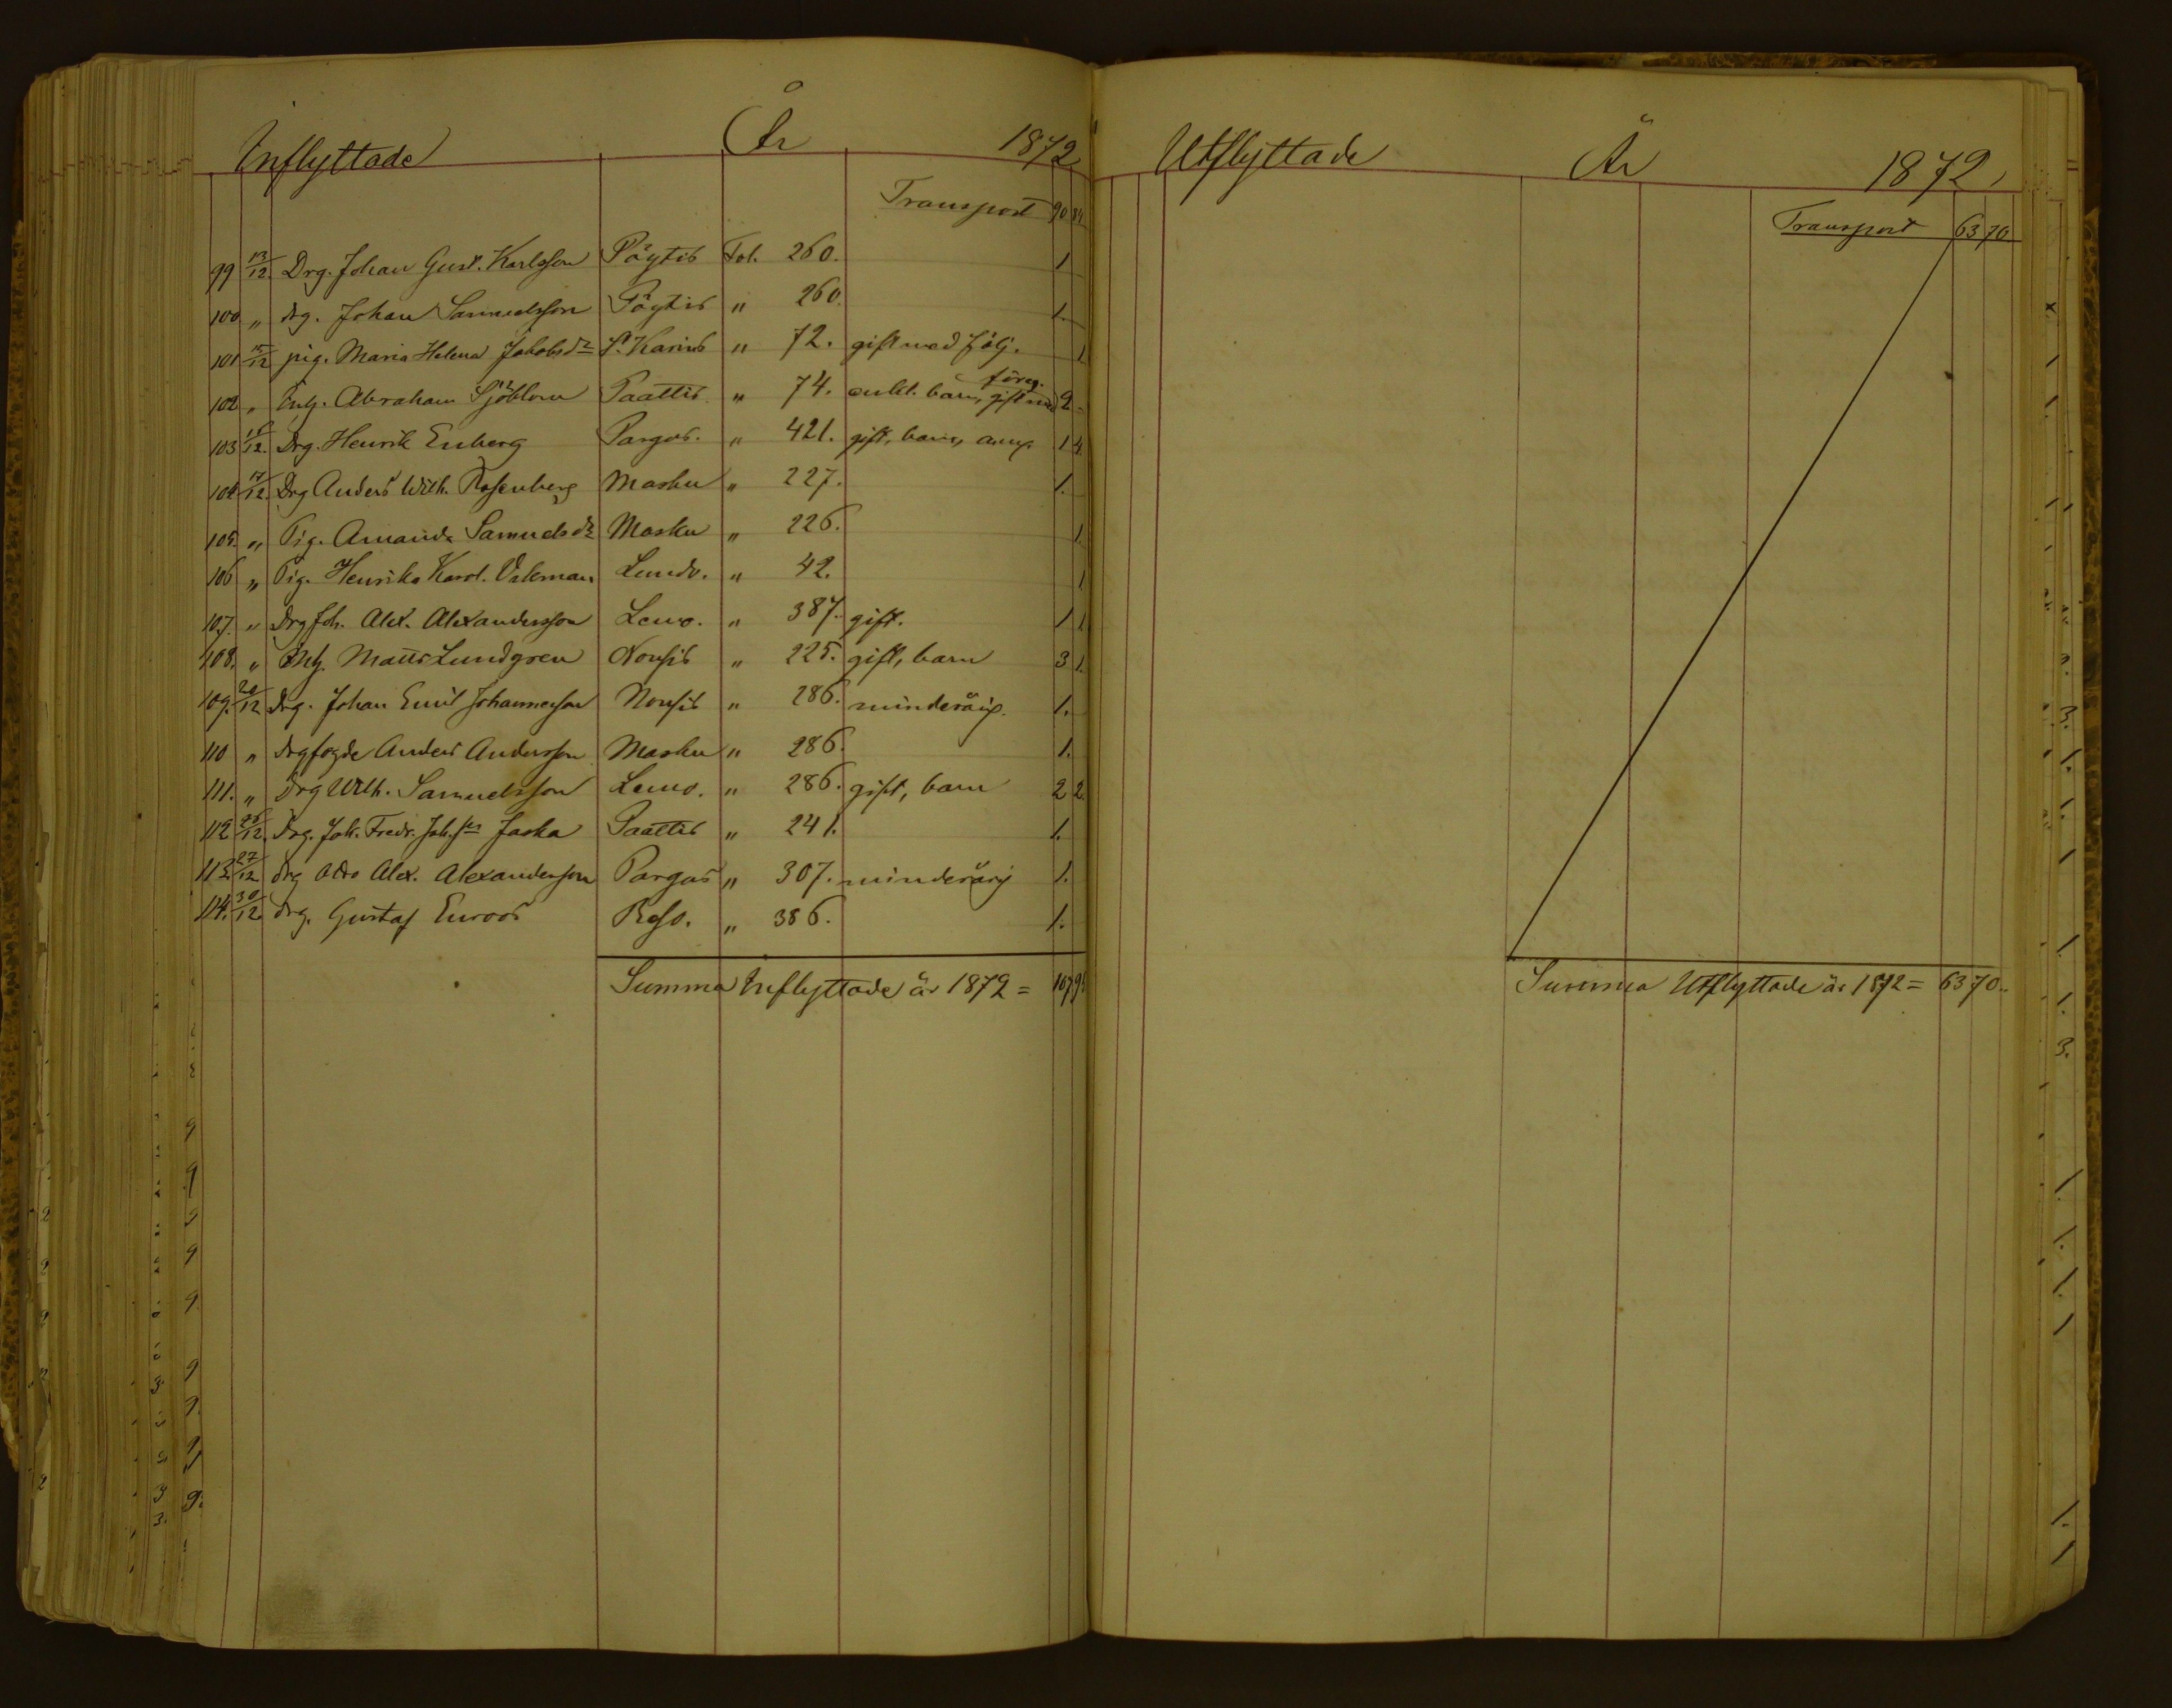 Inflyttade År 1872
Transport 90 84
99 13/12 Drg. Johan Gust. Karlsson Pöytis Fol. 260. 1
100 " drg. Johan Samuelsson Pöytis " 260. 1.
101 15/12 pig. Maria Helena Jakobsdr St. Karins " 72. gift med följ. 1
102 " Abraham Sjöblom Paattis " 74. enkl. barn, gift med föreg. 2
103 /12. Drg. Henrik Enberg Pargas. " 421. gift, barn, 1 4.
104 17/12. Drg Anders Wilh. Rosenberg Masku " 227. 1.
105. " Pig. Amanda Samuelsdr Masku " 226. 1
106 " Pig. Henrika Karol. Lundo. " 42. 1
107. " Drg Joh. Alex. Alexandersson Lemo. " 387. gift. 1 1
108. " Matts Lundgren Nousis " 225. gift, barn 3 1.
109. 20/12 drg. Johan Emil Johannesson Nousis " 286. minderårig. 1.
110 " drgfogde Anders Andersson Masku " 286. 1.
111. " Drg Wilh. Samuelsson Lemo. " 286. gift, barn 2 2.
112 /12. Drg. Joh. Fredr. Joh.sn Jaska Paattis " 241. 1.
113. 27/12 drg Otto Alex. Alexandersson Pargas " 307. minderårig 1.
114. 30/12. drg. Gustaf Enroos Reso. " 386. 1.
Summa Inflyttade år 1872 = 107
Utflyttade År 1872,
Transport 63 70
Summa Utflyttade år 1872 = 63 70.